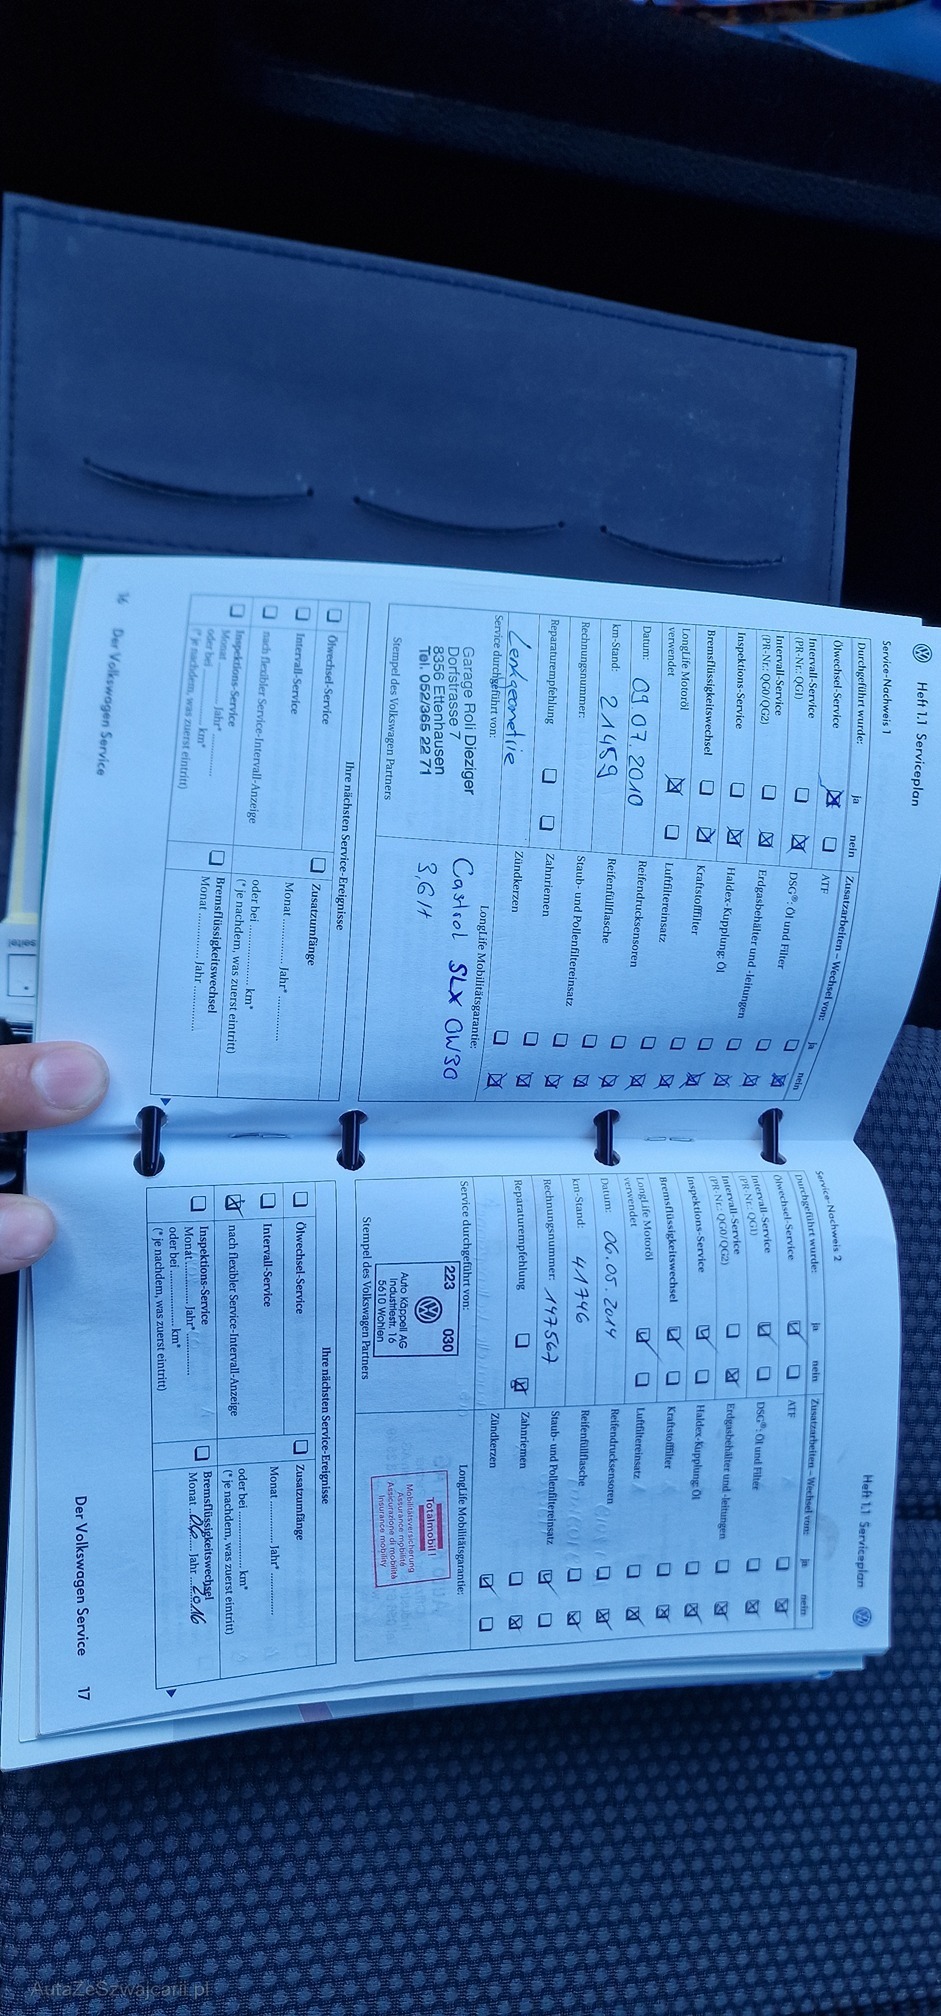 Heft 1.1 Serviceplan
Service-Nachweis 1
Durchgeführt wurde: ja nein
Ölwechsel-Service ☒ ☐
Intervall-Service ☐ ☒
(PR-Nr.: QG1)
Intervall-Service ☐ ☒
(PR-Nr.: QG0/QG2)
Inspektions-Service ☐ ☒
Bremsflüssigkeitswechsel ☐ ☒
LongLife Motoröl ☒ ☐
verwendet
Datum: 09.07.2010
km-Stand: 21459
Rechnungsnummer:
Reparaturempfehlung ☐ ☐
Lenkgeometrie
Service durchgeführt von:
Garage Roli Dieziger
Dorfstrasse 7
8356 Ettenhausen
Tel. 052/365 22 71
Stempel des Volkswagen Partners
Zusatzarbeiten – Wechsel von: ja nein
ATF
DSG®: Öl und Filter ☐ ☒
Erdgasbehälter und -leitungen ☐ ☒
Haldex-Kupplung: Öl ☐ ☒
Kraftstofffilter ☐ ☒
Luftfiltereinsatz ☐ ☒
Reifendrucksensoren ☐ ☒
Reifenfüllflasche ☐ ☒
Staub- und Pollenfiltereinsatz ☐ ☒
Zahnriemen ☐ ☒
Zündkerzen ☐ ☒
LongLife Mobilitätsgarantie:
Castrol SLX 0W30
Ihre nächsten Service-Ereignisse
☐ Ölwechsel-Service
☐ Intervall-Service
☐ nach flexibler Service-Intervall-Anzeige
☐ Inspektions-Service
Monat ............ Jahr* ............
oder bei ............ km*
(*je nachdem, was zuerst eintritt)
☐ Zusatzumfänge
Monat ............ Jahr* ............
oder bei ............ km*
(*je nachdem, was zuerst eintritt)
☐ Bremsflüssigkeitswechsel
Monat ............ Jahr ............
16 Der Volkswagen Service
Heft 1.1 Serviceplan
Service-Nachweis 2
Durchgeführt wurde: ja nein
Ölwechsel-Service ☒ ☐
Intervall-Service ☒ ☐
(PR-Nr.: QG1)
Intervall-Service ☐ ☒
(PR-Nr.: QG0/QG2)
Inspektions-Service ☒ ☐
Bremsflüssigkeitswechsel ☒ ☐
LongLife Motoröl ☒ ☐
verwendet
Datum: 06.05.2014
km-Stand: 41746
Rechnungsnummer: 147567
Reparaturempfehlung ☐ ☒
Service durchgeführt von:
223 030
Auto Käppeli AG
Industriestr. 16
5610 Wohlen
Stempel des Volkswagen Partners
Zusatzarbeiten – Wechsel von: ja nein
ATF ☐ ☒
DSG®: Öl und Filter ☐ ☒
Erdgasbehälter und -leitungen ☐ ☒
Haldex-Kupplung: Öl ☐ ☒
Kraftstofffilter ☐ ☒
Luftfiltereinsatz ☐ ☒
Reifendrucksensoren ☐ ☒
Reifenfüllflasche ☐ ☒
Staub- und Pollenfiltereinsatz ☒ ☐
Zahnriemen ☐ ☒
Zündkerzen ☒ ☐
LongLife Mobilitätsgarantie:
Totalmobil!
Mobilitätsversicherung
Assurance mobilité
Assicurazione di mobilità
Insurance mobility
Ihre nächsten Service-Ereignisse
☐ Ölwechsel-Service
☐ Intervall-Service
☒ nach flexibler Service-Intervall-Anzeige
☐ Inspektions-Service
Monat ............ Jahr* ............
oder bei ............ km*
(*je nachdem, was zuerst eintritt)
☐ Zusatzumfänge
Monat ............ Jahr* ............
oder bei ............ km*
(*je nachdem, was zuerst eintritt)
☐ Bremsflüssigkeitswechsel
Monat 06 Jahr 2016
Der Volkswagen Service 17
AutaZeSzwajcarii.pl